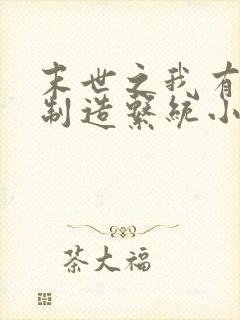 末世之我有
制造系统小
茶大福